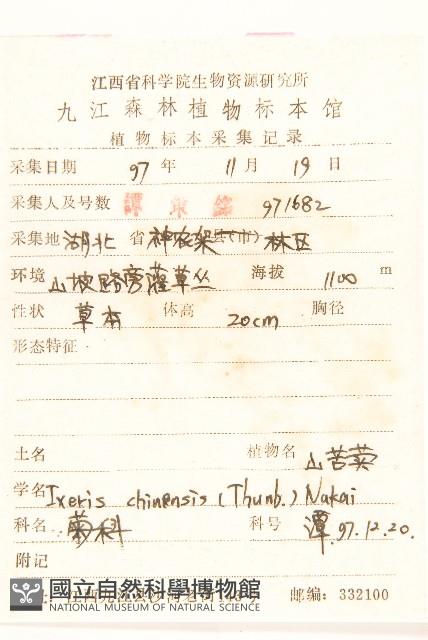 江西省科学院生物资源研究所
九江森林植物标本馆
植物标本采集记录
采集日期 97 年 11 月 19 日
采集人及号数 譚策銘 971682
采集地 湖北 省 神农架 县(市) 林区
环境 山坡路旁灌草丛 海拔 1100 m
性状 草本 体高 20cm 胸径
形态特征
土名 植物名 山苦荬
学名 Ixeris chinensis (Thunb.) Nakai
科名 菊科 科号 潭 97.12.20.
附记
國立自然科學博物館
NATIONAL MUSEUM OF NATURAL SCIENCE
邮编: 332100